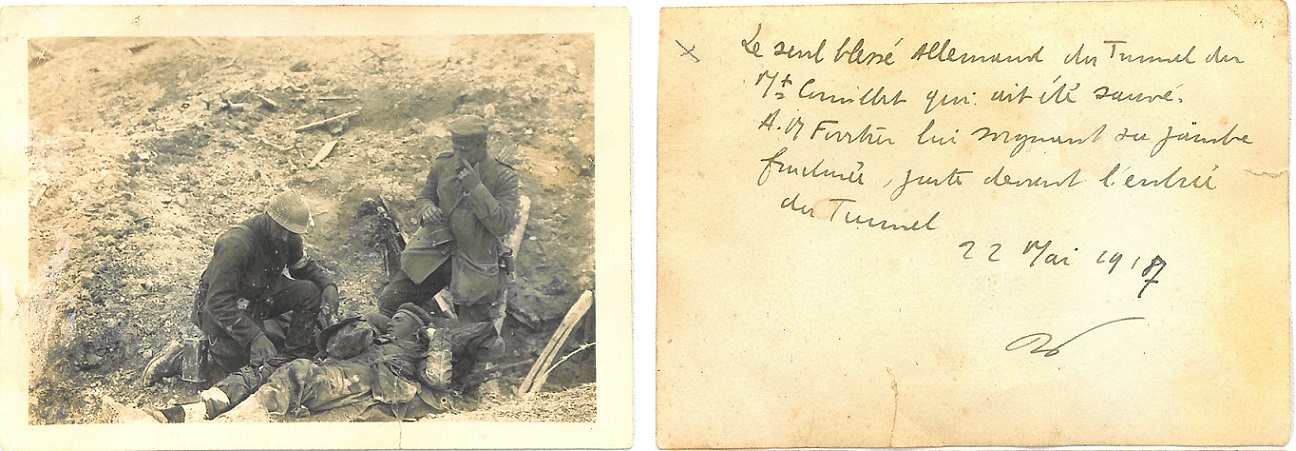 Le seul blessé allemand du Tunnel du
Mt Cornillet qui ait été sauvé.
A. M Forestier lui soignant sa jambe
fracturée, juste devant l'entrée
du Tunnel
22 Mai 1917